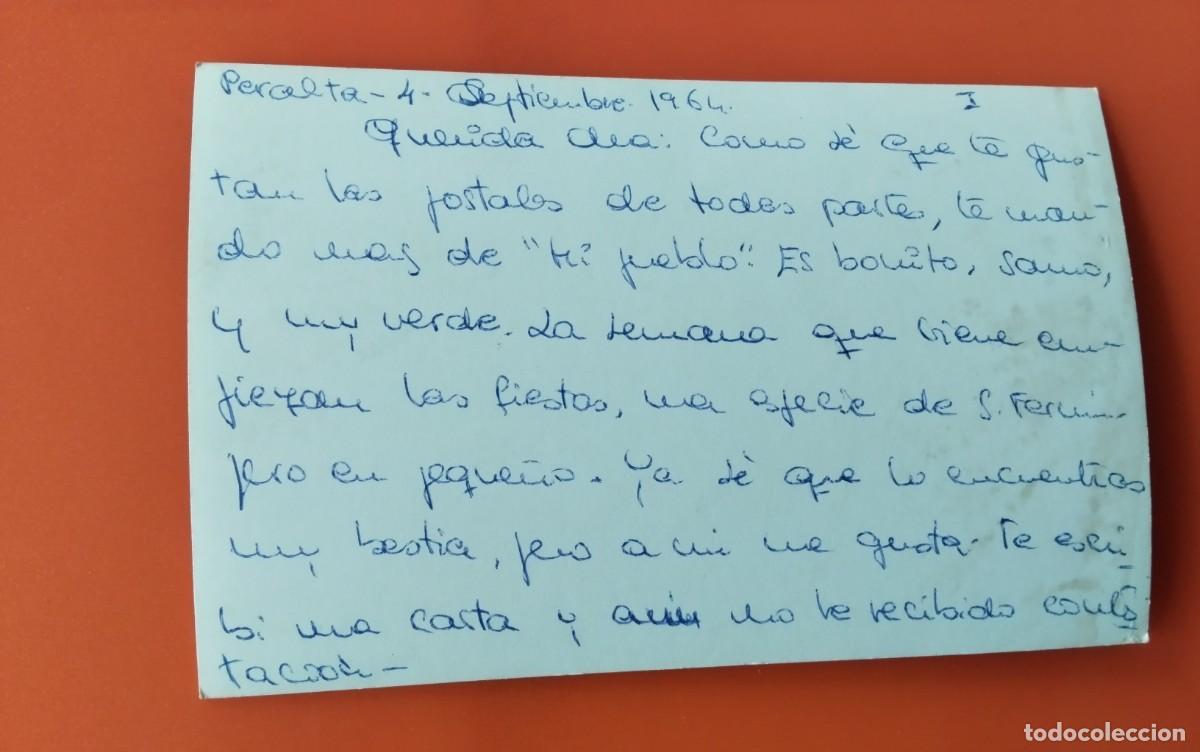 Peralta - 4 - Septiembre - 1964. I
Querida Ana: Como sé que te gus-
tan las postales de todas partes, te man-
do unas de "mi pueblo". Es bonito, sano,
y muy verde. La semana que viene em-
piezan las fiestas, una especie de S. Fermin
pero en pequeño. Ya sé que lo encuentras
muy bestia, pero a mi me gusta. Te escri-
bi una carta y aun no he recibido contes
tación -
todocoleccion